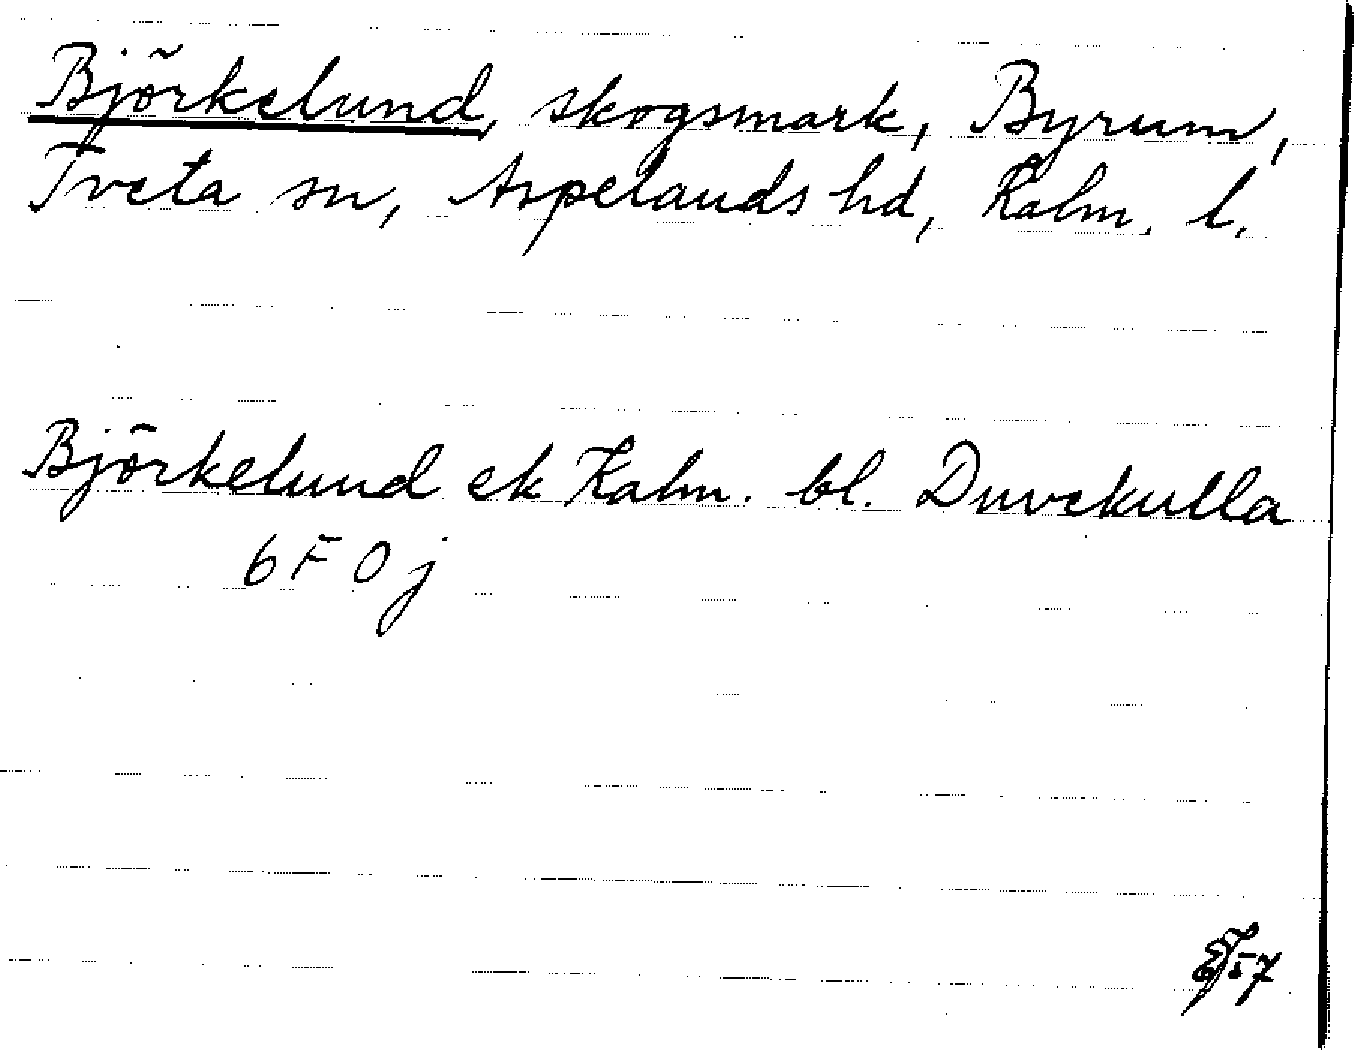 Björkelund, skogsmark, Byrum,
Tveta sn, Aspelands hd, Kalm. l.
Björkelund ek Kalm. bl. Duvekulla
6 F 0 j
57